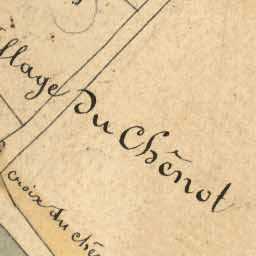 illage du Chênot
croix du chê